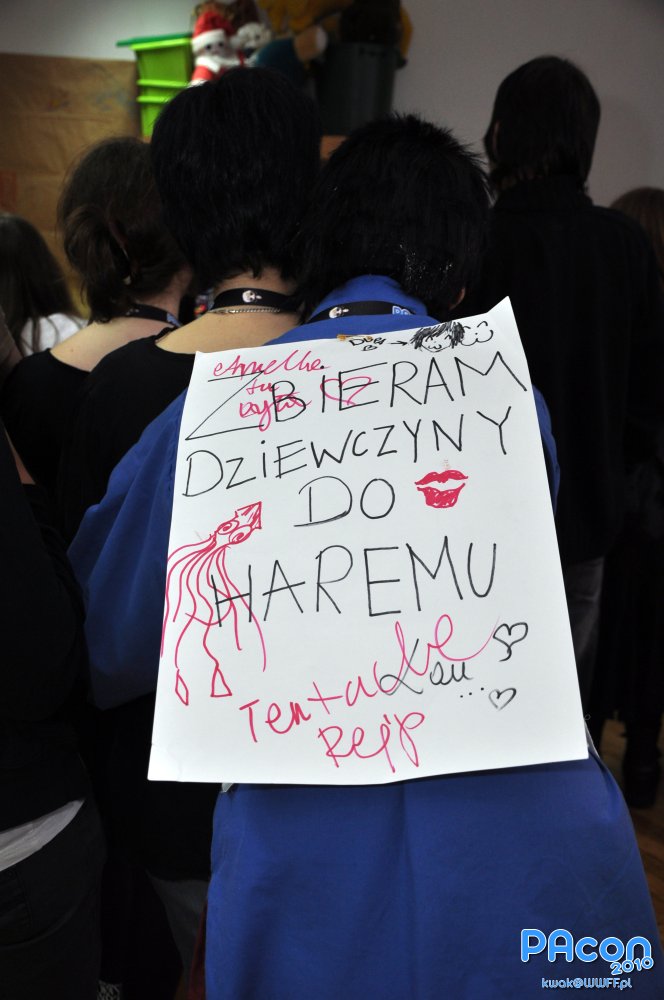 ZBIERAM
DZIEWCZYNY
DO
HAREMU
Tentacle
Kou ...
Rejp
PAcon
2010
kwak@WWFF.pl